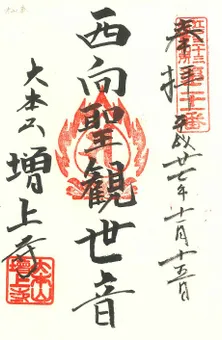 奉拝
平成廿七年十一月十五日
西向聖観世音
大本山
増上寺
大本山
増上寺